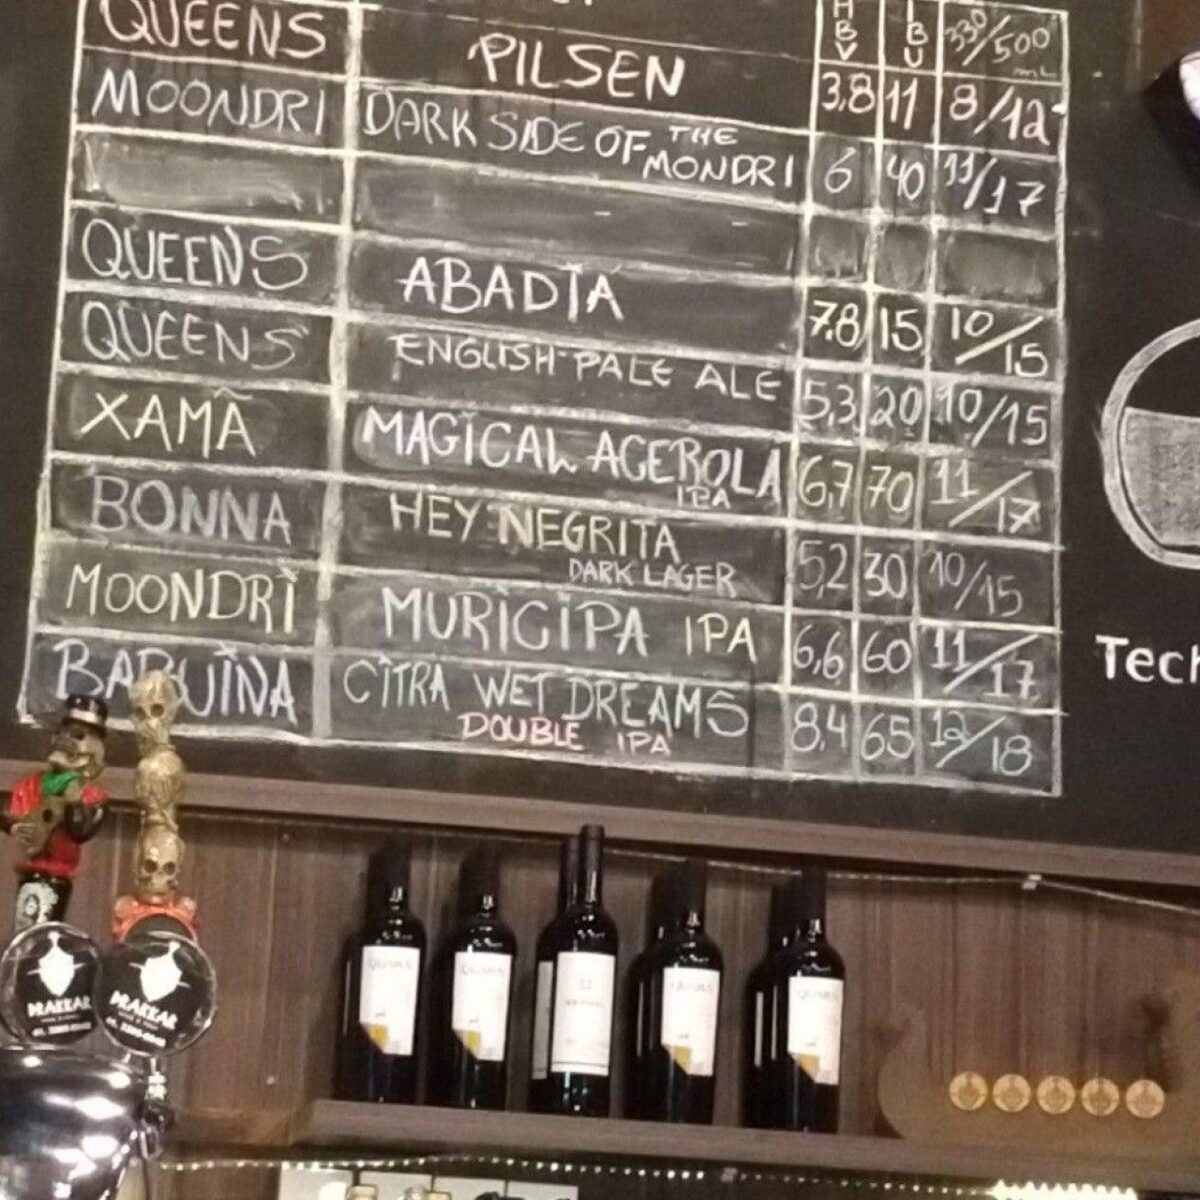 QUEENS PILSEN 3,8 11 8/12
ABV IBU 330/500 mL
MOONDRI DARK SIDE OF THE MONDRI 6 40 11/17
QUEENS ABADIA 7,8 15 10/15
QUEENS ENGLISH PALE ALE 5,3 20 10/15
XAMÃ MAGICAL ACEROLA IPA 6,7 70 11/17
BONNA HEY NEGRITA DARK LAGER 5,2 30 10/15
MOONDRI MURICIPA IPA 6,6 60 11/17
CITRA WET DREAMS DOUBLE IPA 8,4 65 12/18
Tech
DRAKKAR
DRAKKAR